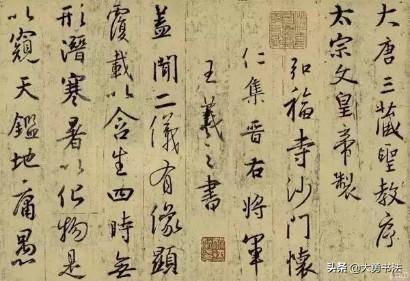 大唐三藏聖教序
太宗文皇帝製
弘福寺沙門懷
仁集晉右將軍
王羲之書
蓋聞二儀有像顯
覆載以含生四時無
形潛寒暑以化物是
以窺天鑑地庸愚
头条 @大勇书法